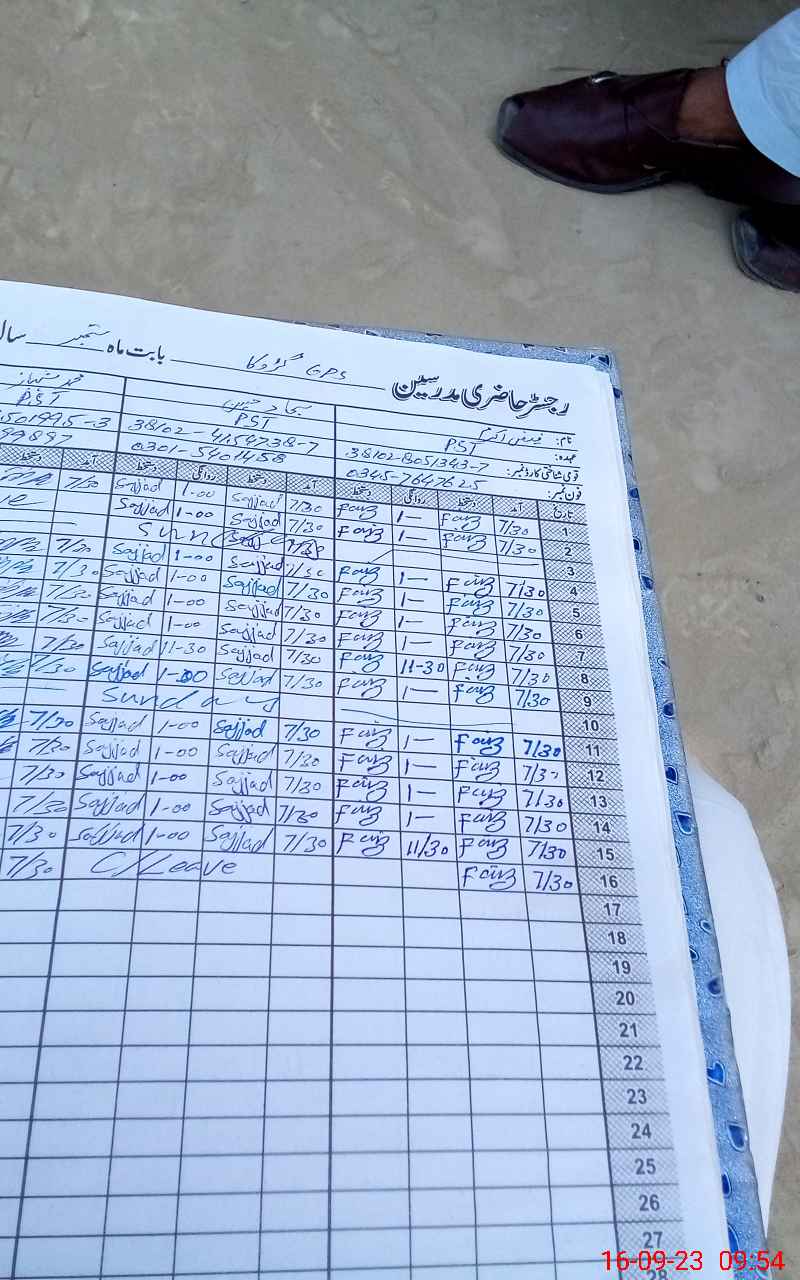 رجسٹر حاضری مدرسین GPS گڑوکا بابت ماہ ستمبر سال
نام: فیض اکرم سجاد حسین محمد شہباز
عہدہ: PST PST PST
قومی شناختی کارڈ نمبر: 38102-8051343-7 38102-4154738-7 501995-3
فون نمبر: 0345-7647625 0301-5401458 99897
تاریخ آمد دستخط روانگی دستخط آمد دستخط روانگی دستخط آمد دستخط
1 7/30 Faiz 1— Faiz 7/30 Sajjad 1-00 Sajjad 7/30
2 7/30 Faiz 1— Faiz 7/30 Sajjad 1-00 Sajjad
3 Sun
4 7/30 Faiz 1— Faiz 7/30 Sajjad 1-00 Sajjad 7/30
5 7/30 Faiz 1— Faiz 7/30 Sajjad 1-00 Sajjad 7/30
6 7/30 Faiz 1— Faiz 7/30 Sajjad 1-00 Sajjad 7/30
7 7/30 Faiz 1— Faiz 7/30 Sajjad 1-00 Sajjad 7/30
8 7/30 Faiz 11-30 Faiz 7/30 Sajjad 11-30 Sajjad 7/30
9 7/30 Faiz 1— Faiz 7/30 Sajjad 1-00 Sajjad 7/30
10 Sunday
11 7/30 Faiz 1— Faiz 7/30 Sajjad 1-00 Sajjad 7/30
12 7/30 Faiz 1— Faiz 7/30 Sajjad 1-00 Sajjad 7/30
13 7/30 Faiz 1— Faiz 7/30 Sajjad 1-00 Sajjad 7/30
14 7/30 Faiz 1— Faiz 7/30 Sajjad 1-00 Sajjad 7/30
15 7/30 Faiz 11/30 Faiz 7/30 Sajjad 1-00 Sajjad 7/30
16 7/30 Faiz C/Leave 7/30
17
18
19
20
21
22
23
24
25
26
27
28
16-09-23 09:54